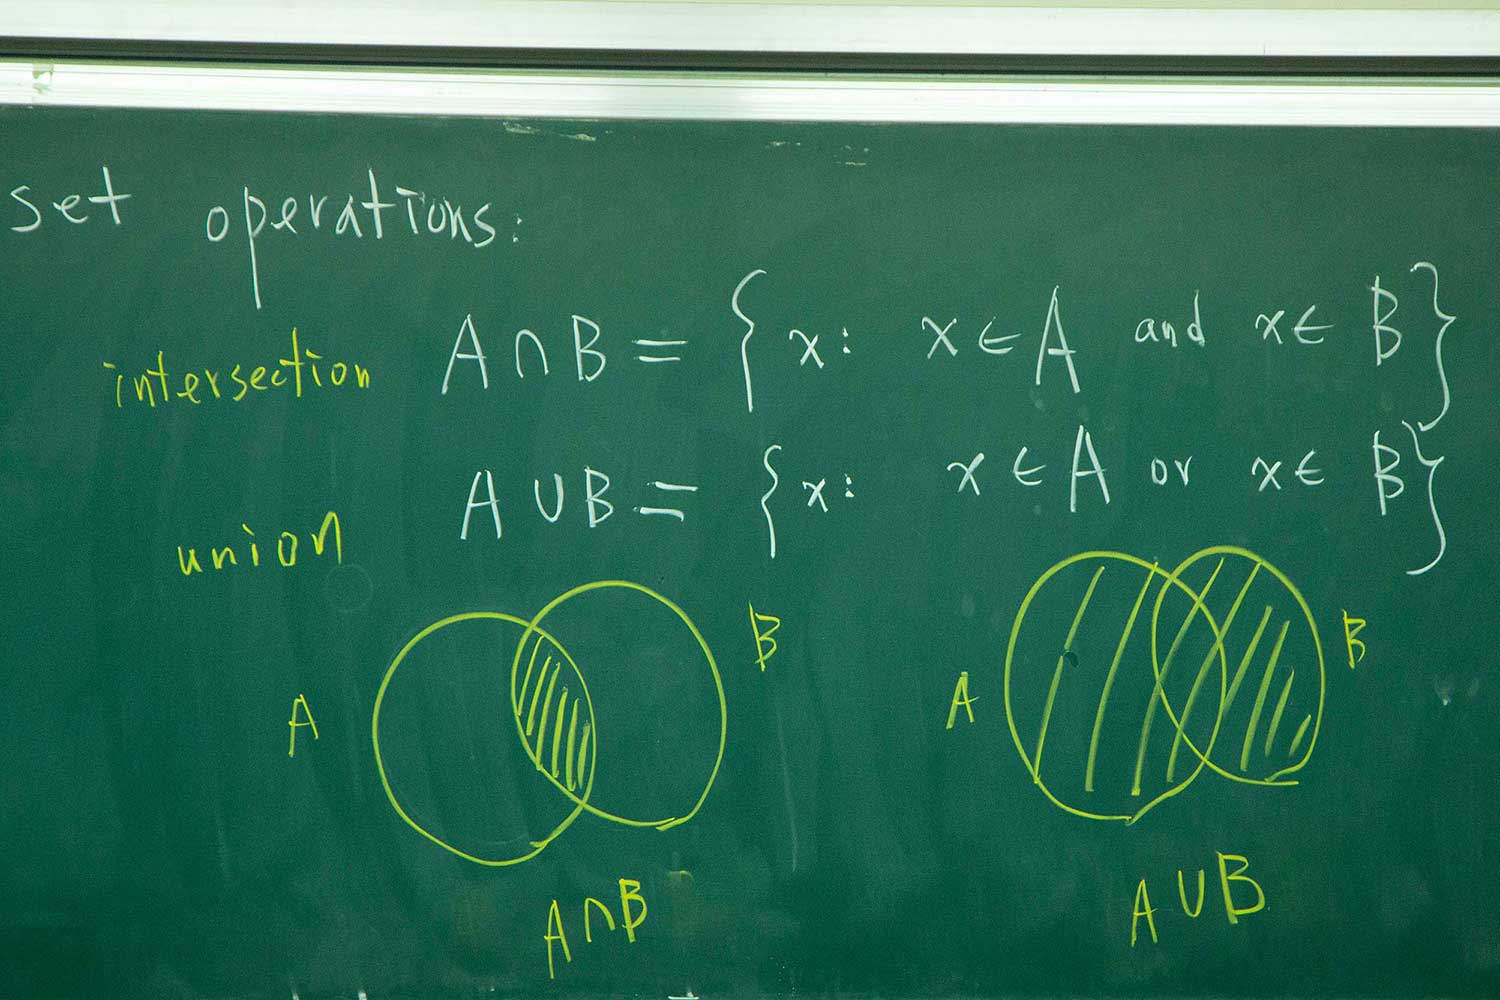 set operations:
intersection A∩B = { x: x∈A and x∈B }
union A∪B = { x: x∈A or x∈B }
A B A B
A∩B A∪B